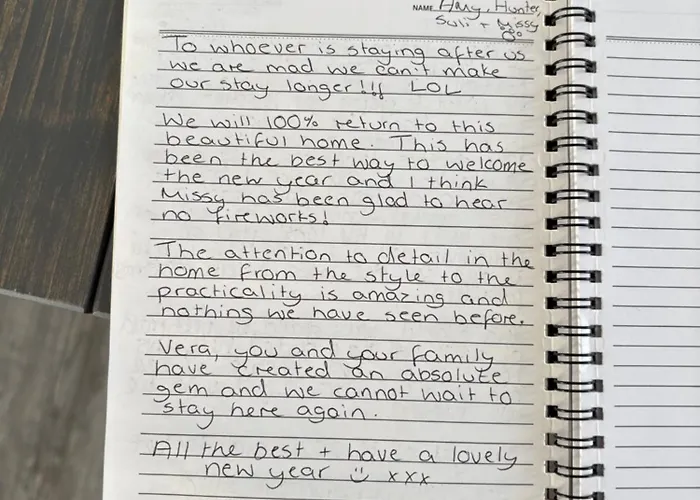 NAME Amy, Hunter,
Suli + Missy
To whoever is staying after us
we are mad we can't make
our stay longer!!! LOL
We will 100% return to this
beautiful home. This has
been the best way to welcome
the new year and I think
Missy has been glad to hear
no fireworks!
The attention to detail in the
home from the style to the
practicality is amazing and
nothing we have seen before.
Vera, you and your family
have created an absolute
gem and we cannot wait to
stay here again.
All the best + have a lovely
new year ☺ xxx